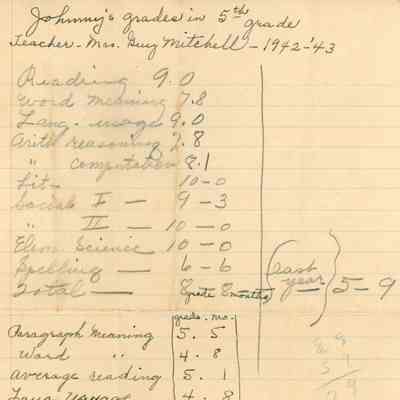 Johnny's grades in 5th grade
Teacher - Mrs. Guy Mitchell - 1942-'43
Reading 9.0
Word Meaning 7.8
Lang. usage 9.0
Arith reasoning 7.8
" computation 8.1
Lit- 10-0
Social I - 9-3
" II - 10-0
Elem Science 10-0
Spelling - 6-6
Total - 8 grade 8 months (last year) 5-9
grade. mo.
Paragraph Meaning 5. 5
Word " 4. 8
Average reading 5. 1
Lang Usage 4. 8